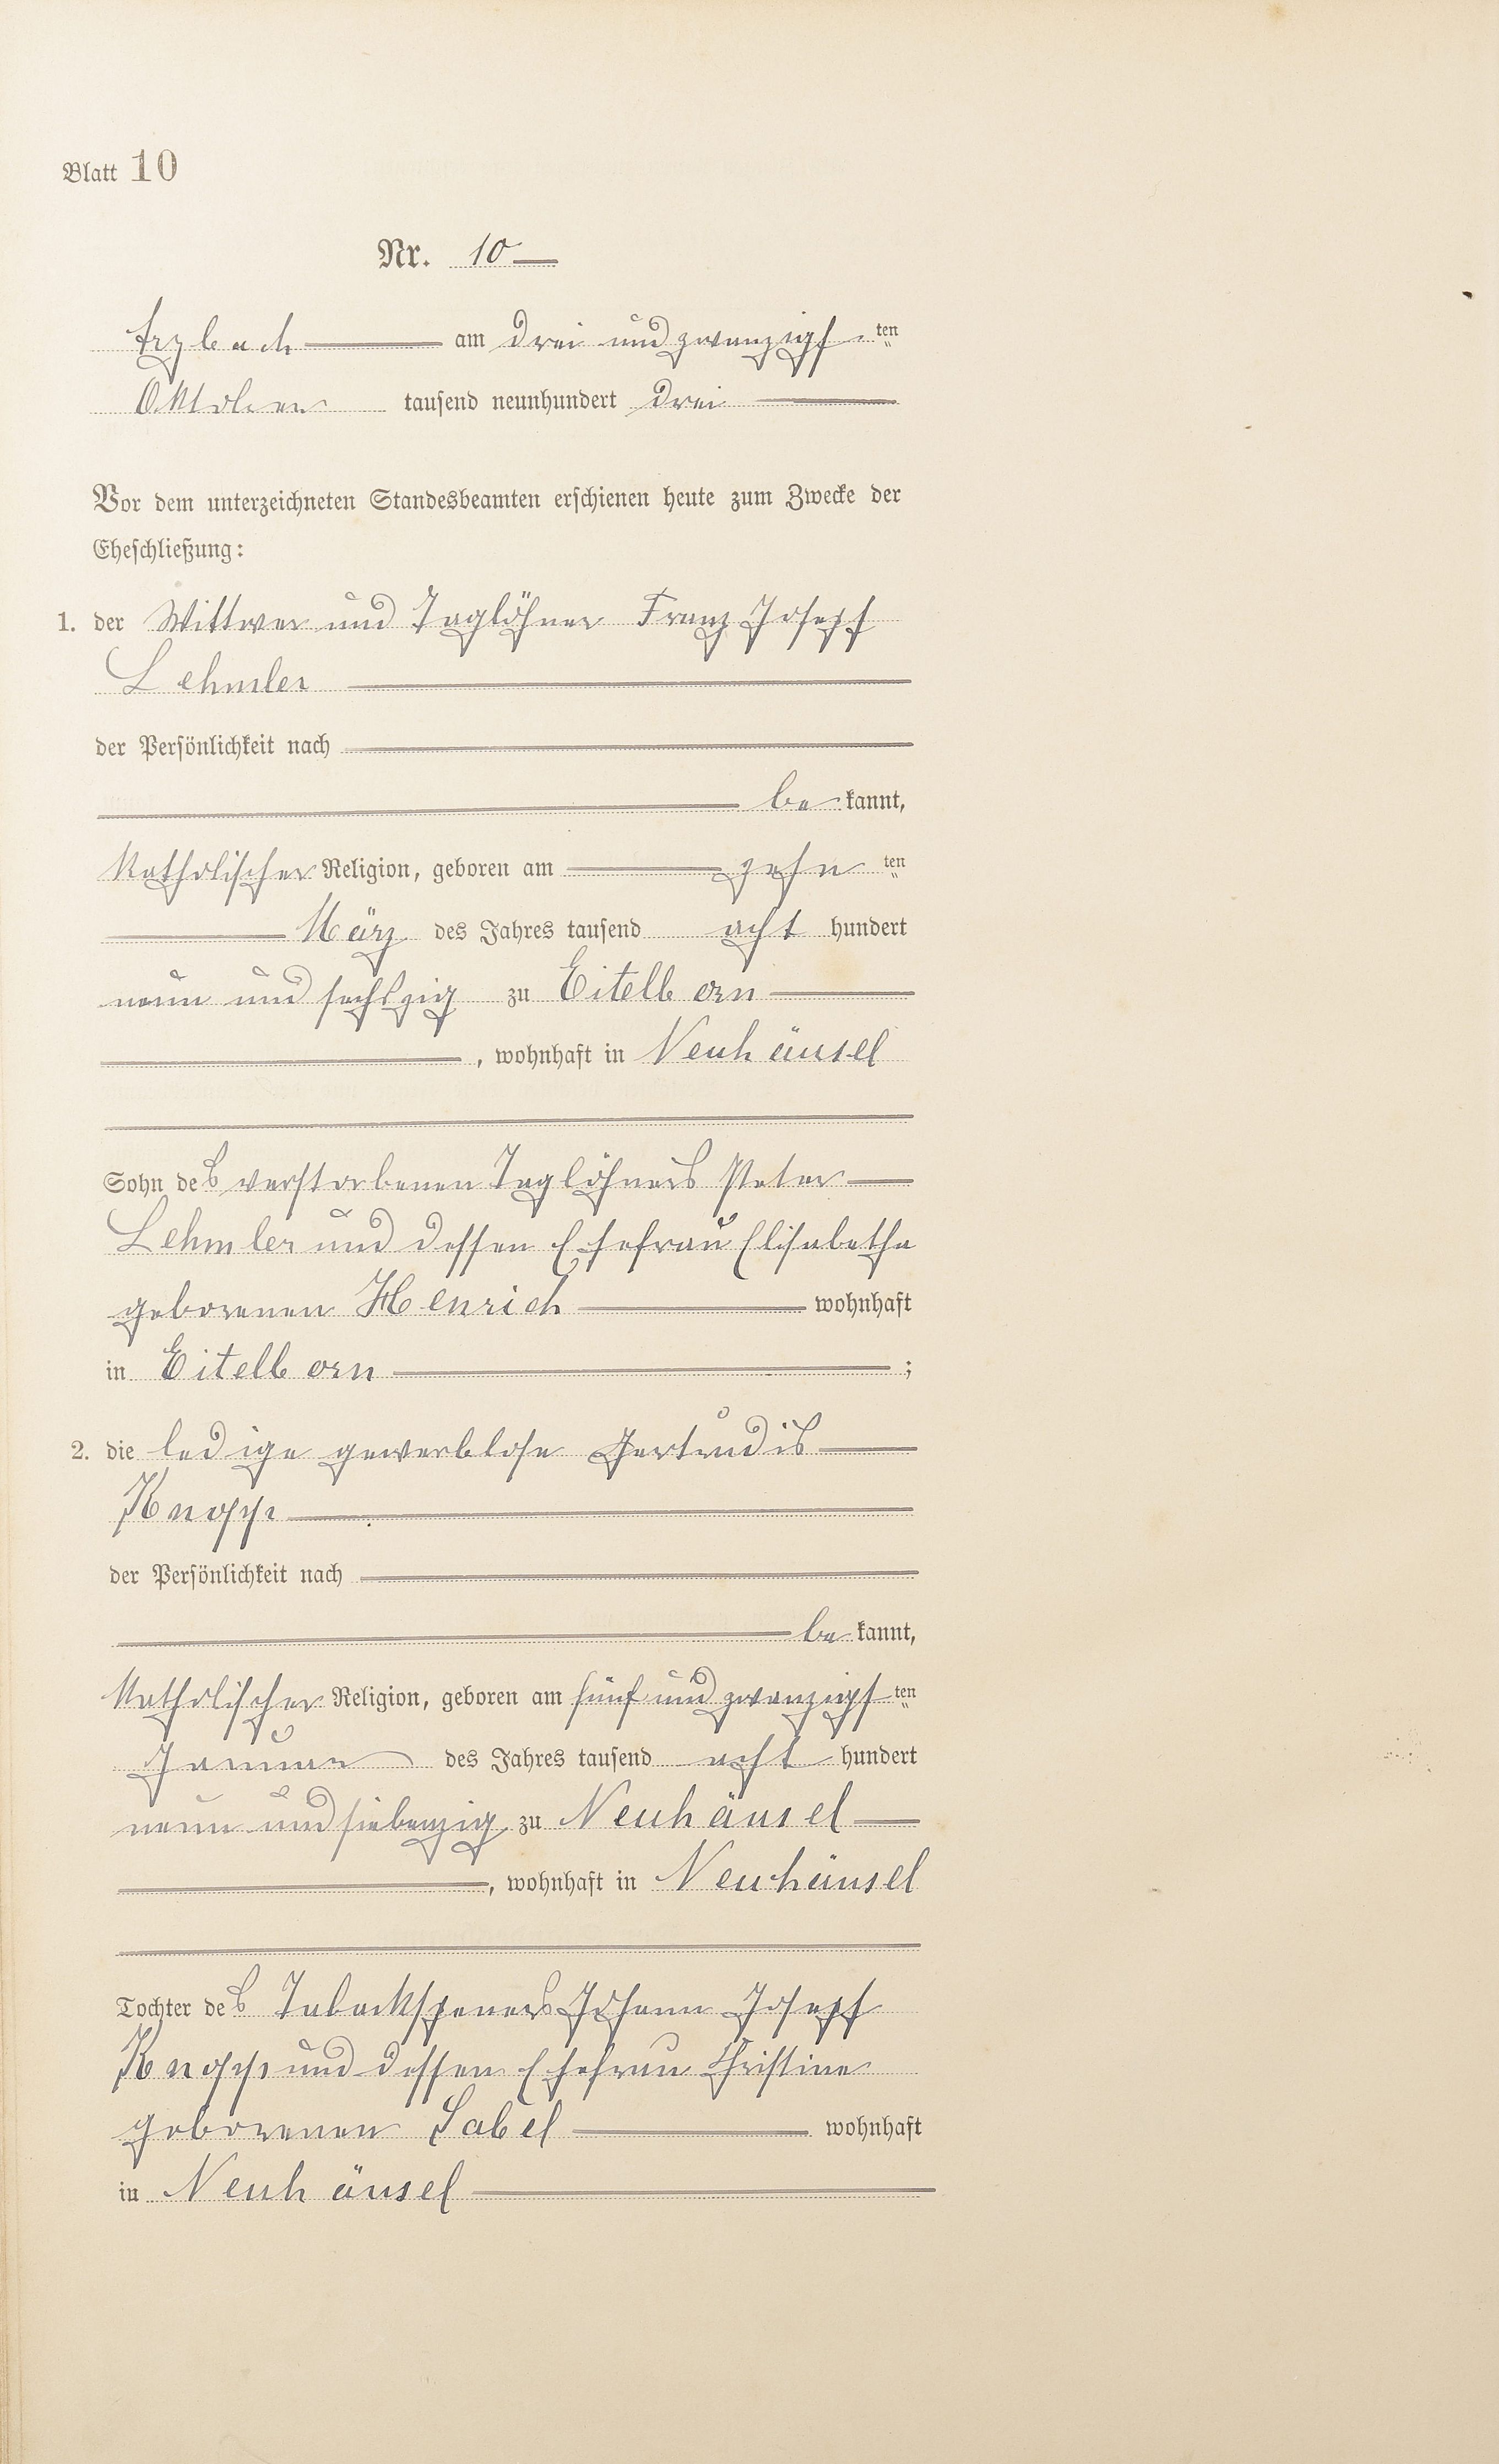 Blatt 10
Nr. 10
Arzbach am drei und zwanzigsten
Oktober tausend neunhundert drei
Vor dem unterzeichneten Standesbeamten erschienen heute zum Zwecke der
Eheschließung:
1. der Wittwer und Taglöhner Franz Joseph
Lehmler
der Persönlichkeit nach
bekannt,
Katholischer Religion, geboren am zehnten
März des Jahres tausend acht hundert
neun und sechszig zu Eitelborn
, wohnhaft in Neuhäusel
Sohn des verstorbenen Taglöhners Peter
Lehmler und dessen Ehefrau Elisabetha
geborenen Henrich wohnhaft
in Eitelborn ;
2. die ledige gewerblose Gertrudis
Knopp
der Persönlichkeit nach
bekannt,
Katholischer Religion, geboren am fünf und zwanzigsten
Januar des Jahres tausend acht hundert
neun und siebenzig zu Neuhäusel
, wohnhaft in Neuhäusel
Tochter des Johann Joseph
Knopp und dessen Ehefrau Christine
geborenen Sabel wohnhaft
in Neuhäusel